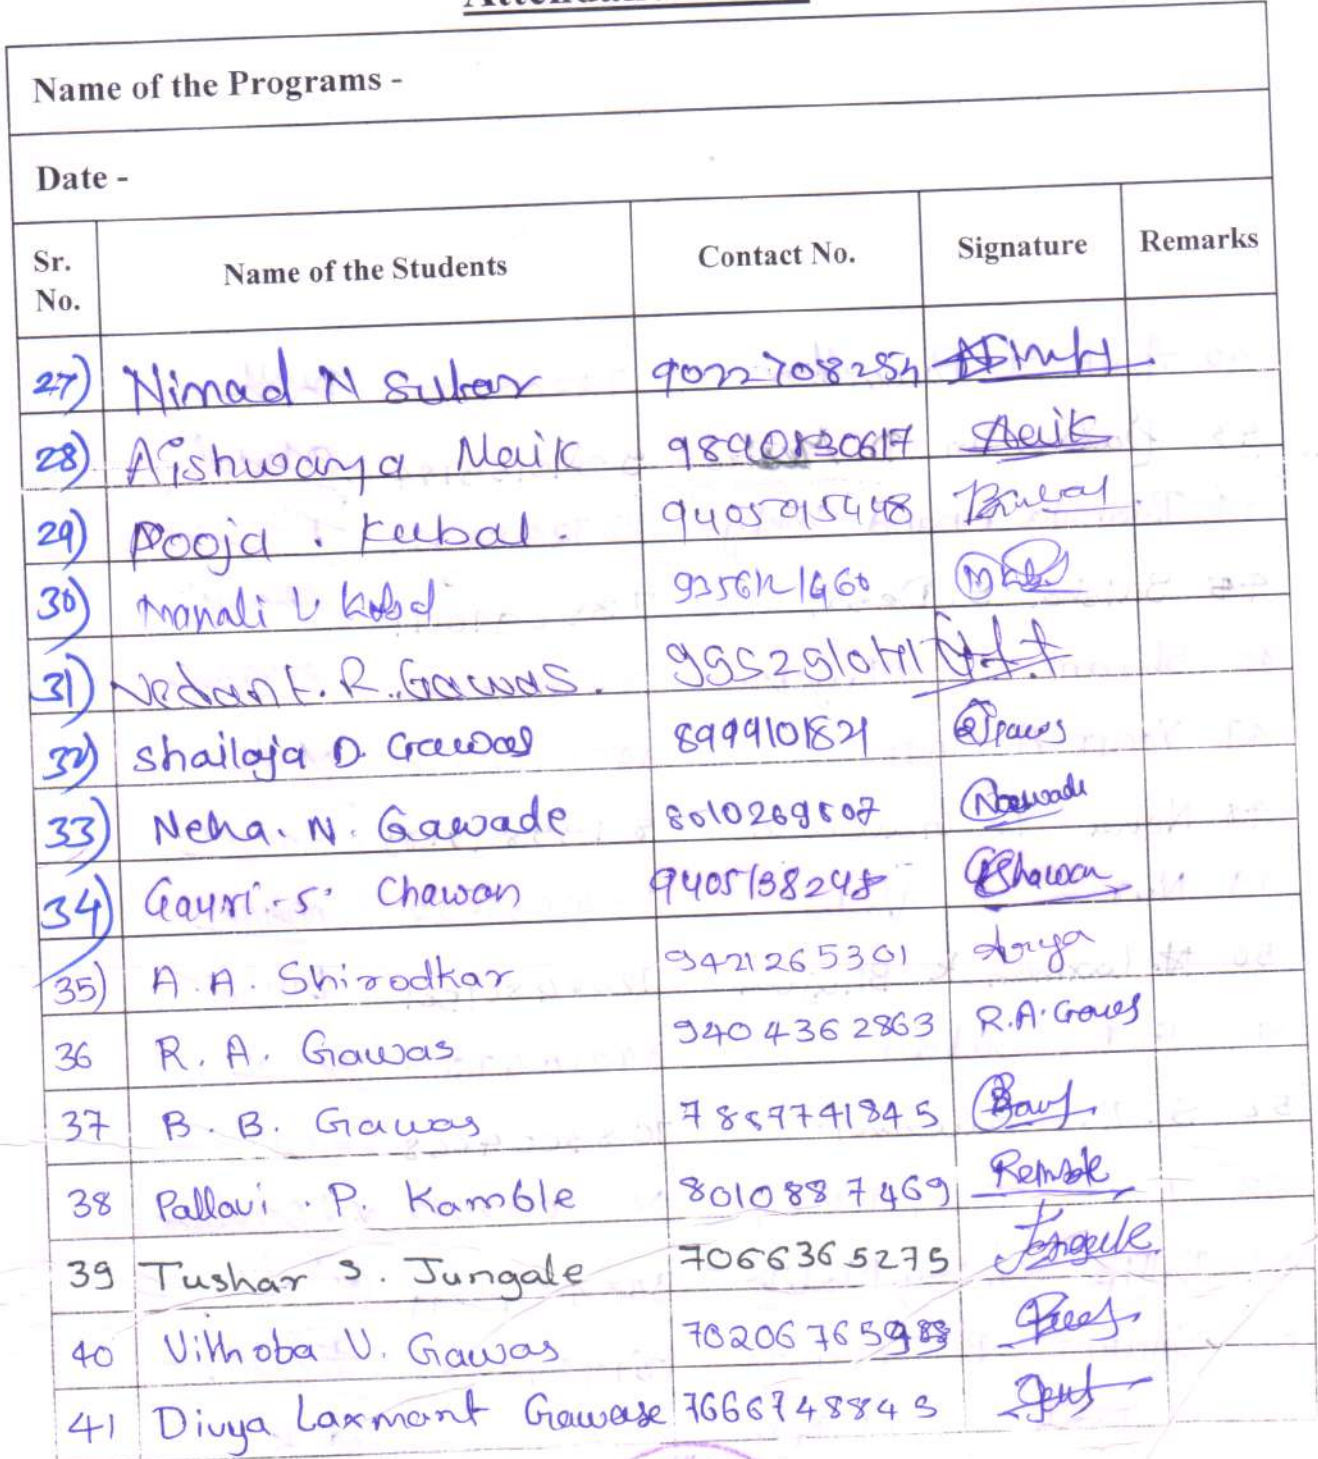 Name of the Programs -
Date -
Sr. No. Name of the Students Contact No. Signature Remarks
27) Nimad N Sutar 9022708254
28) Aishwarya Naik 9890830617 Naik
29) Pooja . Kubal . 9405915448
30) Manali V
31) Vedant . R . Gawas .
32) Shailaja D. Gawas 8999101821
33) Neha . N . Gawade 8010269807 Gawade
34) Gauri . S . Chawan 9405138248 Chawan
35) A . A . Shirodkar 9421265301 Arya
36 R . A . Gawas 9404362863 R.A. Gawas
37 B . B . Gawas 7887741845
38 Pallavi . P. Kamble 8010887469
39 Tushar S . Jungale 7066365275 Jungale
40 Vithoba V. Gawas
41 Divya Laxmant Gawase 7666748845